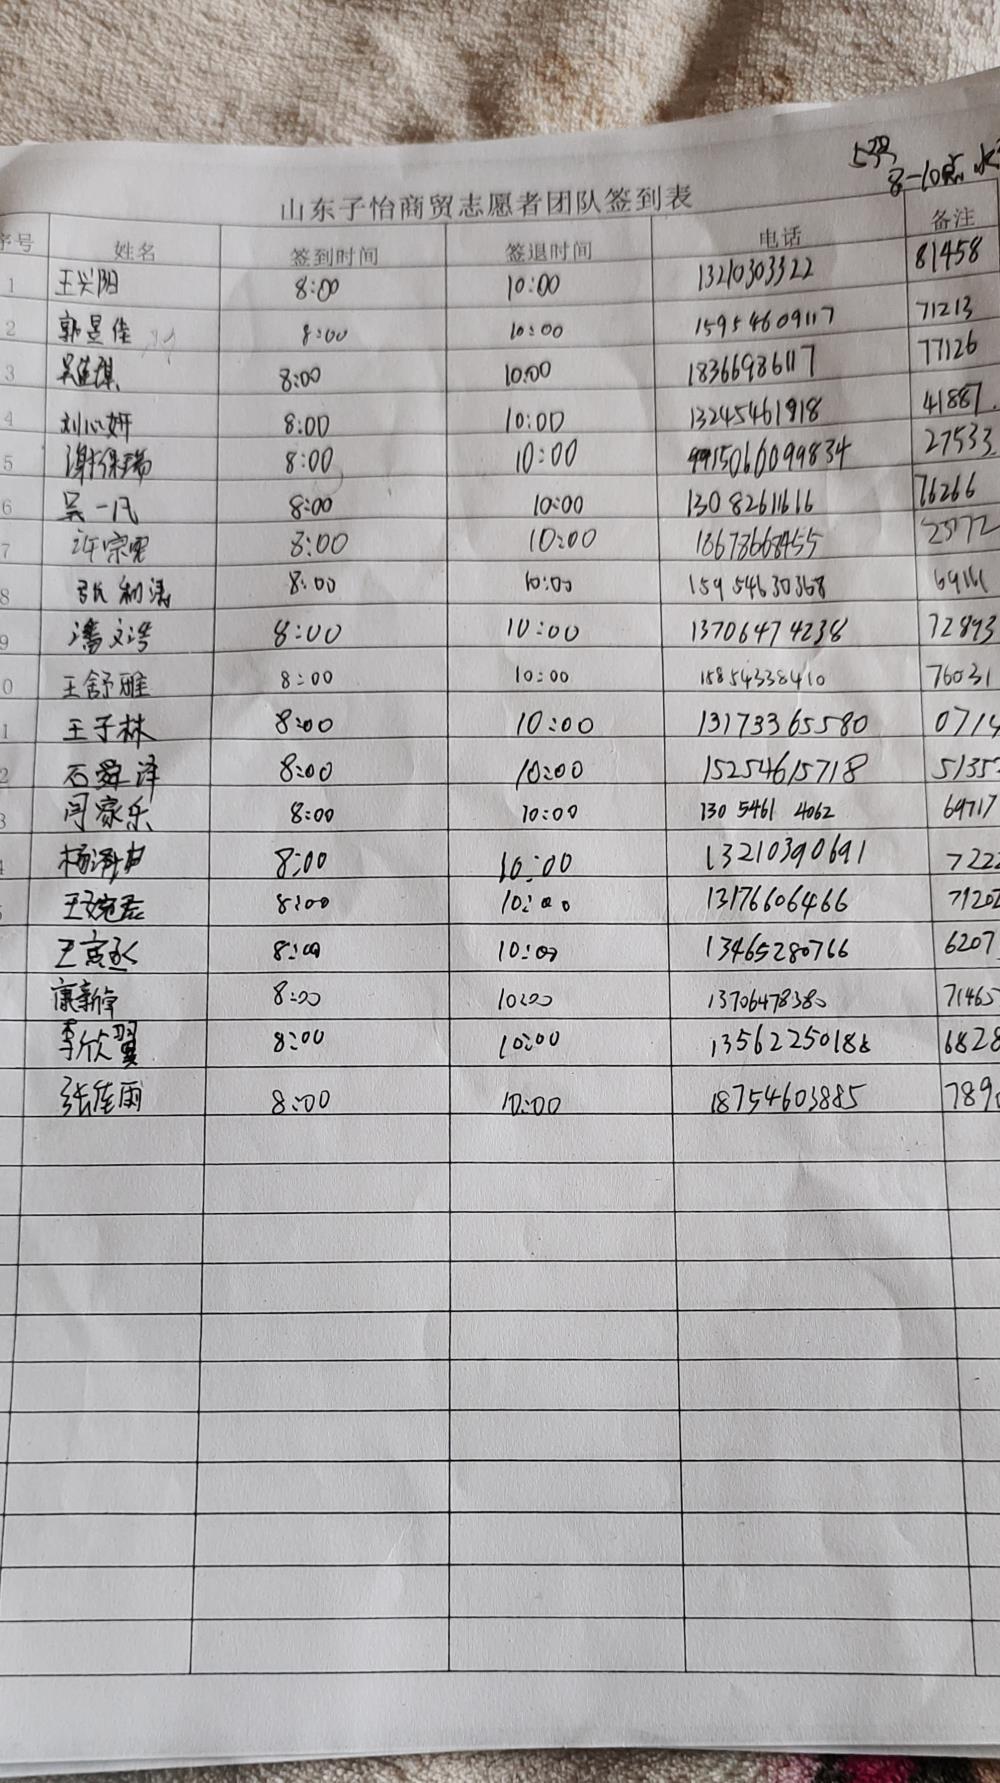 5号
8-10点
山东子怡商贸志愿者团队签到表
序号 姓名 签到时间 签退时间 电话 备注
1 王兴阳 8:00 10:00 13210303322 81458
2 郭昱佳 8:00 10:00 15954609117 71213
3 8:00 10:00 18366986117 77126
4 刘心妍 8:00 10:00 13245461918 41887
5 谢保瑞 8:00 10:00 15066099834 27533
6 吴一凡 8:00 10:00 13082611616 76266
7 许宗 8:00 10:00 18678668455
8 张利涛 8:00 10:00 15954630368 69161
9 潘文浩 8:00 10:00 13706474238 72893
0 王舒雅 8:00 10:00 15854338410 76031
1 王子林 8:00 10:00 13173365580 0714
2 石舜泽 8:00 10:00 15254615718 5135
3 闫家乐 8:00 10:00 130 5461 4062 69717
8:00 10:00 13210390691 7222
王婉 8:00 10:00 13176606466 7120
王寅丞 8:00 10:00 13465280766 6207
康新 8:00 10:00 13706478380 71465
李欣翼 8:00 10:00 13562250188 6828
张佳雨 8:00 10:00 18754603885 789